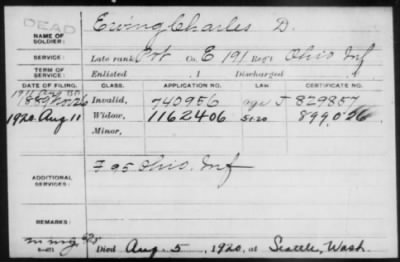 DEAD
NAME OF SOLDIER: Ewing, Charles D.
SERVICE: Late rank Pvt Co. E 191 Reg't Ohio Inf
TERM OF SERVICE: Enlisted , 1 Discharged
DATE OF FILING. CLASS. APPLICATION NO. LAW CERTIFICATE NO.
1889 Nov 26 Invalid, 740956 J 829857
1920. Aug 11 Widow, 1162406 899,056
Minor,
ADDITIONAL SERVICES: F 95 Ohio. Inf
REMARKS:
Died Aug. 5, 1920, at Seattle, Wash.